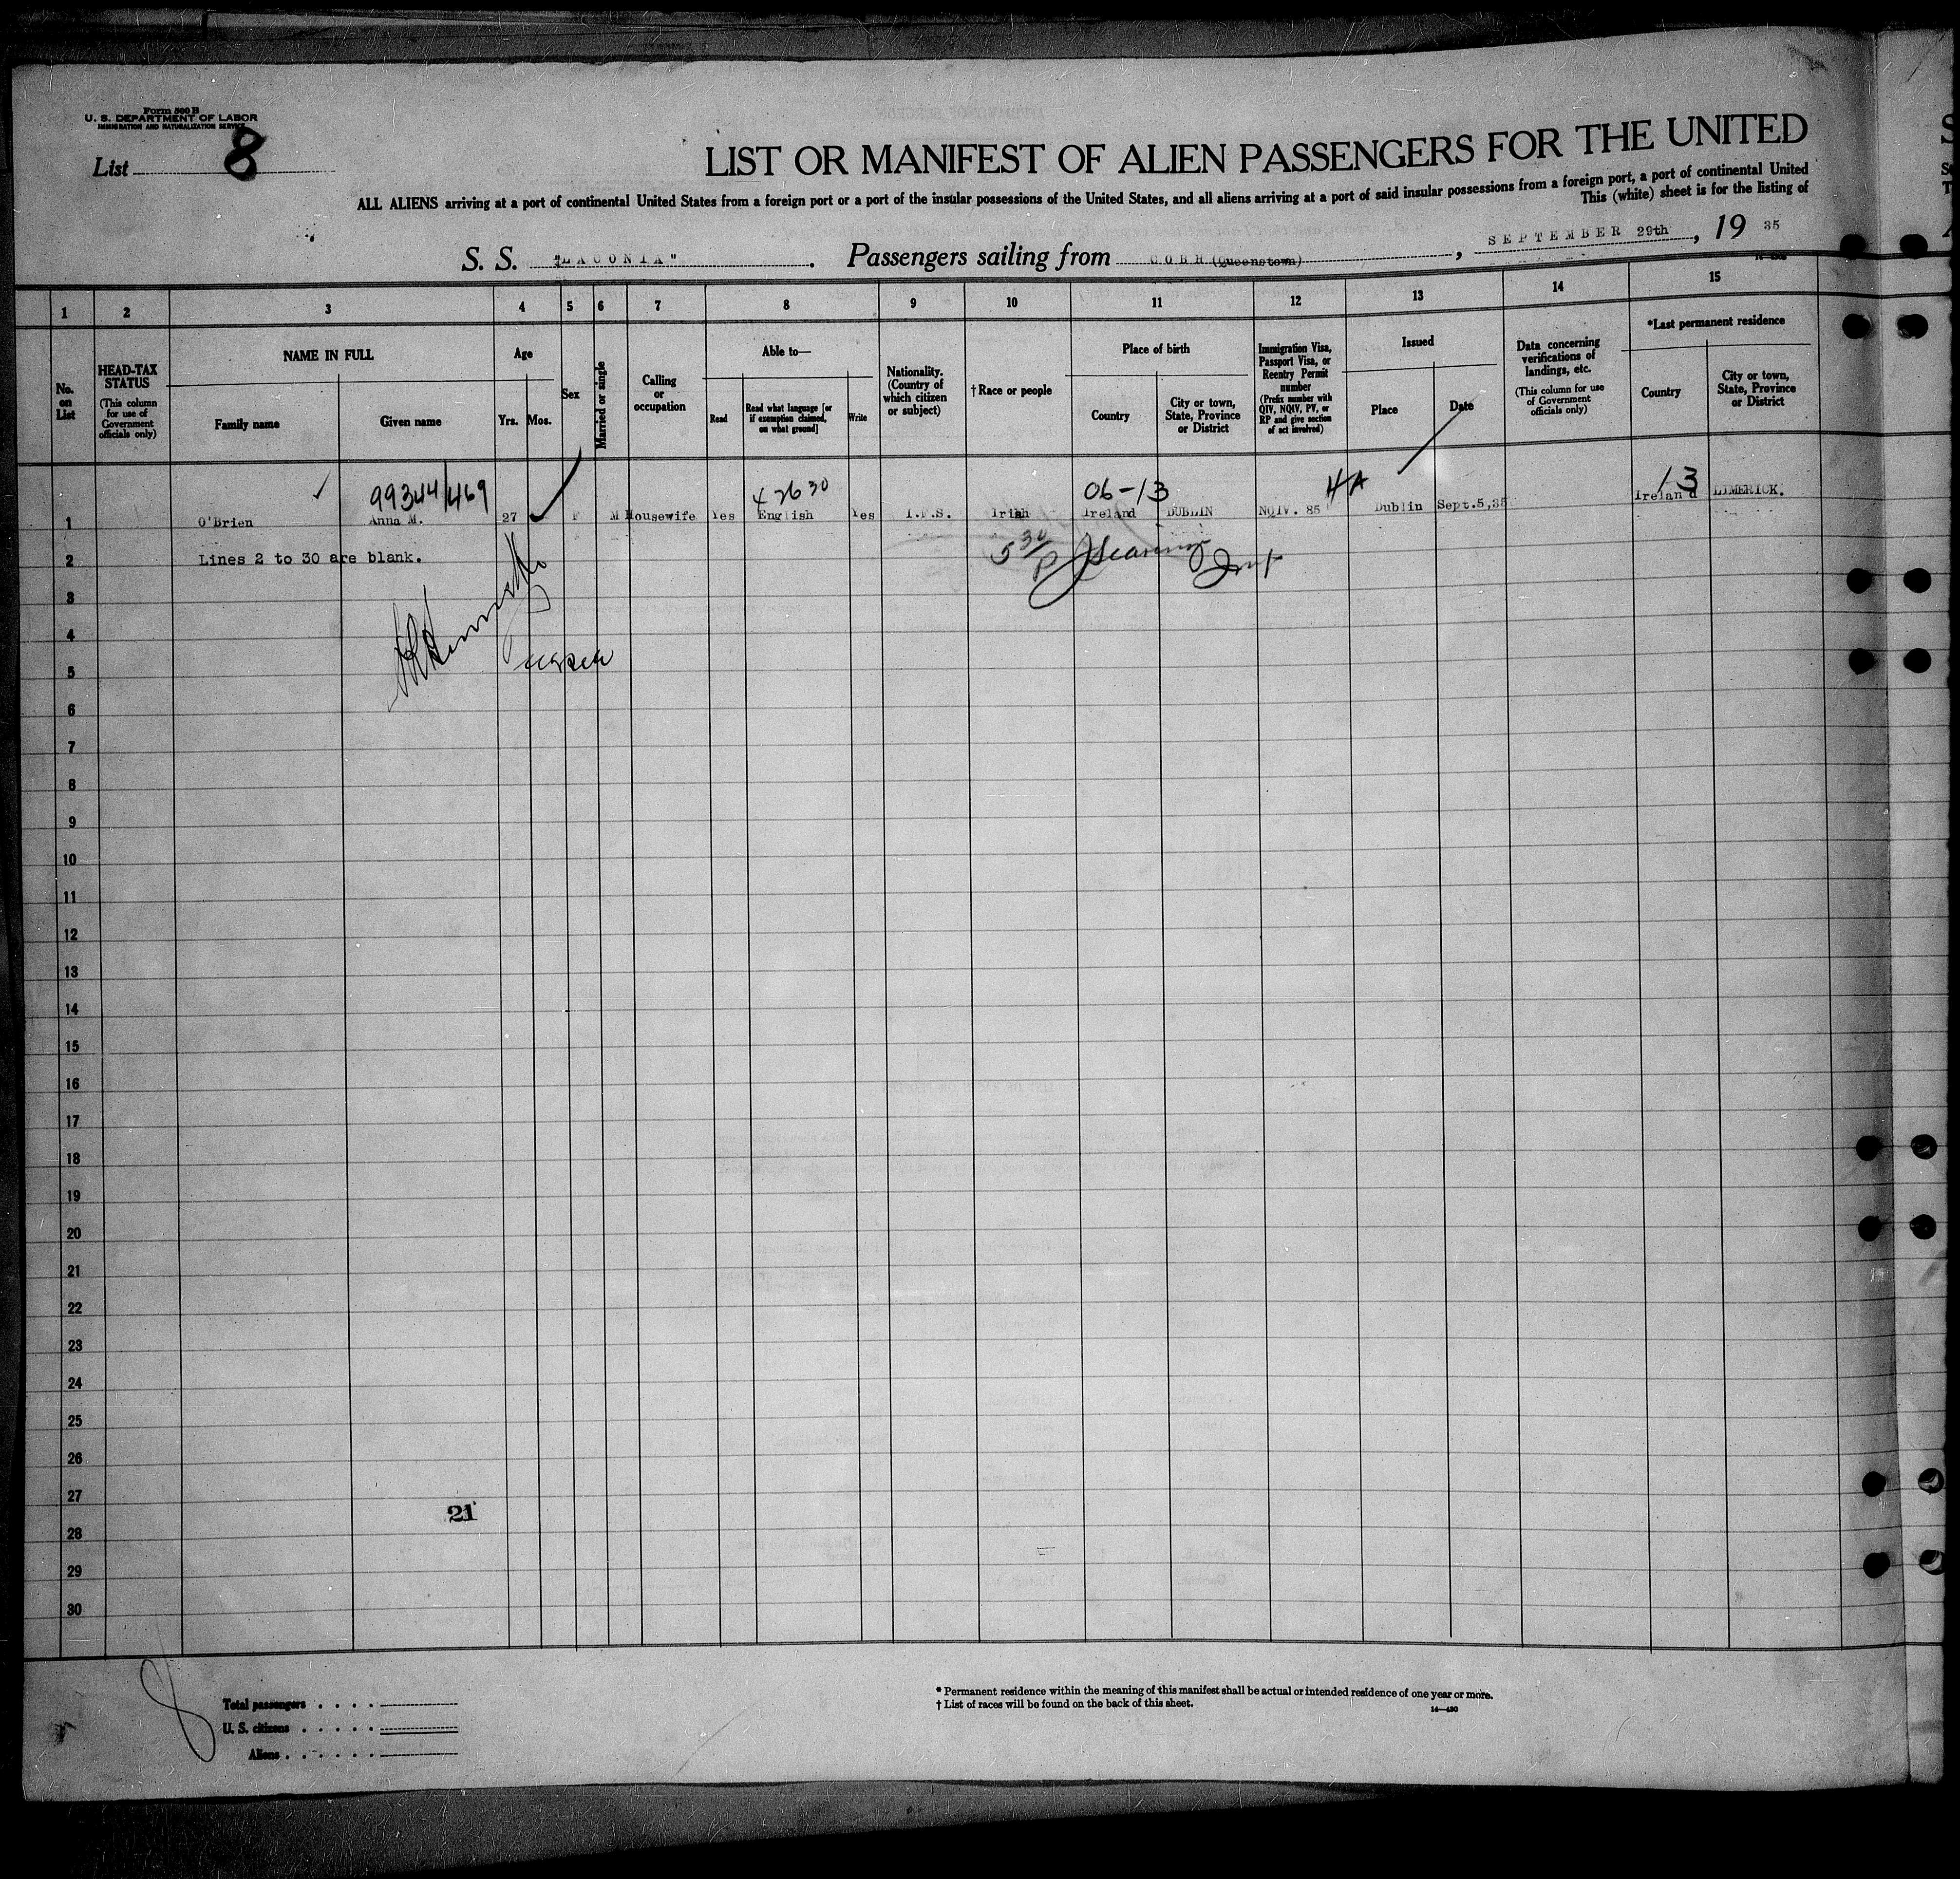 Form 500 B
U. S. DEPARTMENT OF LABOR
IMMIGRATION AND NATURALIZATION SERVICE
List 8
LIST OR MANIFEST OF ALIEN PASSENGERS FOR THE UNITED
ALL ALIENS arriving at a port of continental United States from a foreign port or a port of the insular possessions of the United States, and all aliens arriving at a port of said insular possessions from a foreign port, a port of continental United
This (white) sheet is for the listing of
S. S. "LACONIA" . Passengers sailing from COBH (Queenstown) , SEPTEMBER 29th , 19 35
1 2 3 4 5 6 7 8 9 10 11 12 13 14 15
No. on List
HEAD-TAX STATUS (This column for use of Government officials only)
NAME IN FULL
Family name
Given name
Age
Yrs. Mos.
Sex
Married or single
Calling or occupation
Able to—
Read
Read what language [or if exemption claimed, on what ground]
Write
Nationality. (Country of which citizen or subject)
† Race or people
Place of birth
Country
City or town, State, Province or District
Immigration Visa, Passport Visa, or Reentry Permit number (Prefix number with QIV, NQIV, PV, or RP and give section of act involved)
Issued
Place
Date
Data concerning verifications of landings, etc. (This column for use of Government officials only)
*Last permanent residence
Country
City or town, State, Province or District
99344/469 42630 06-13 4A 13
1 O'Brien Anna M. 27 F M Housewife Yes English Yes I.F.S. Irish Ireland DUBLIN NQIV. 85 Dublin Sept.5,35 Ireland LIMERICK.
2 Lines 2 to 30 are blank. 5 30 P
3
4
5
6
7
8
9
10
11
12
13
14
15
16
17
18
19
20
21
22
23
24
25
26
27
21
28
29
30
8
Total passengers . . . .
U. S. citizens . . . . .
Aliens . . . . . .
* Permanent residence within the meaning of this manifest shall be actual or intended residence of one year or more.
† List of races will be found on the back of this sheet.
14—430